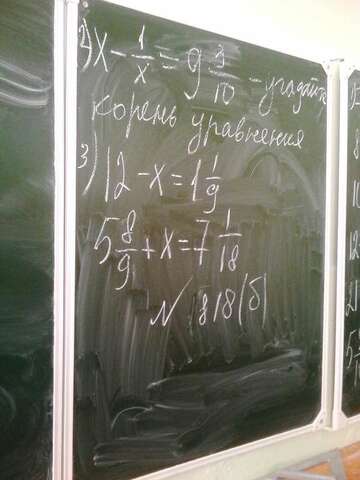 2) x - 1/x = 9 9/10 - угадайте
корень уравнения
3) 12 - x = 1 1/9
5 8/9 + x = 7 1/18
N 818(б)